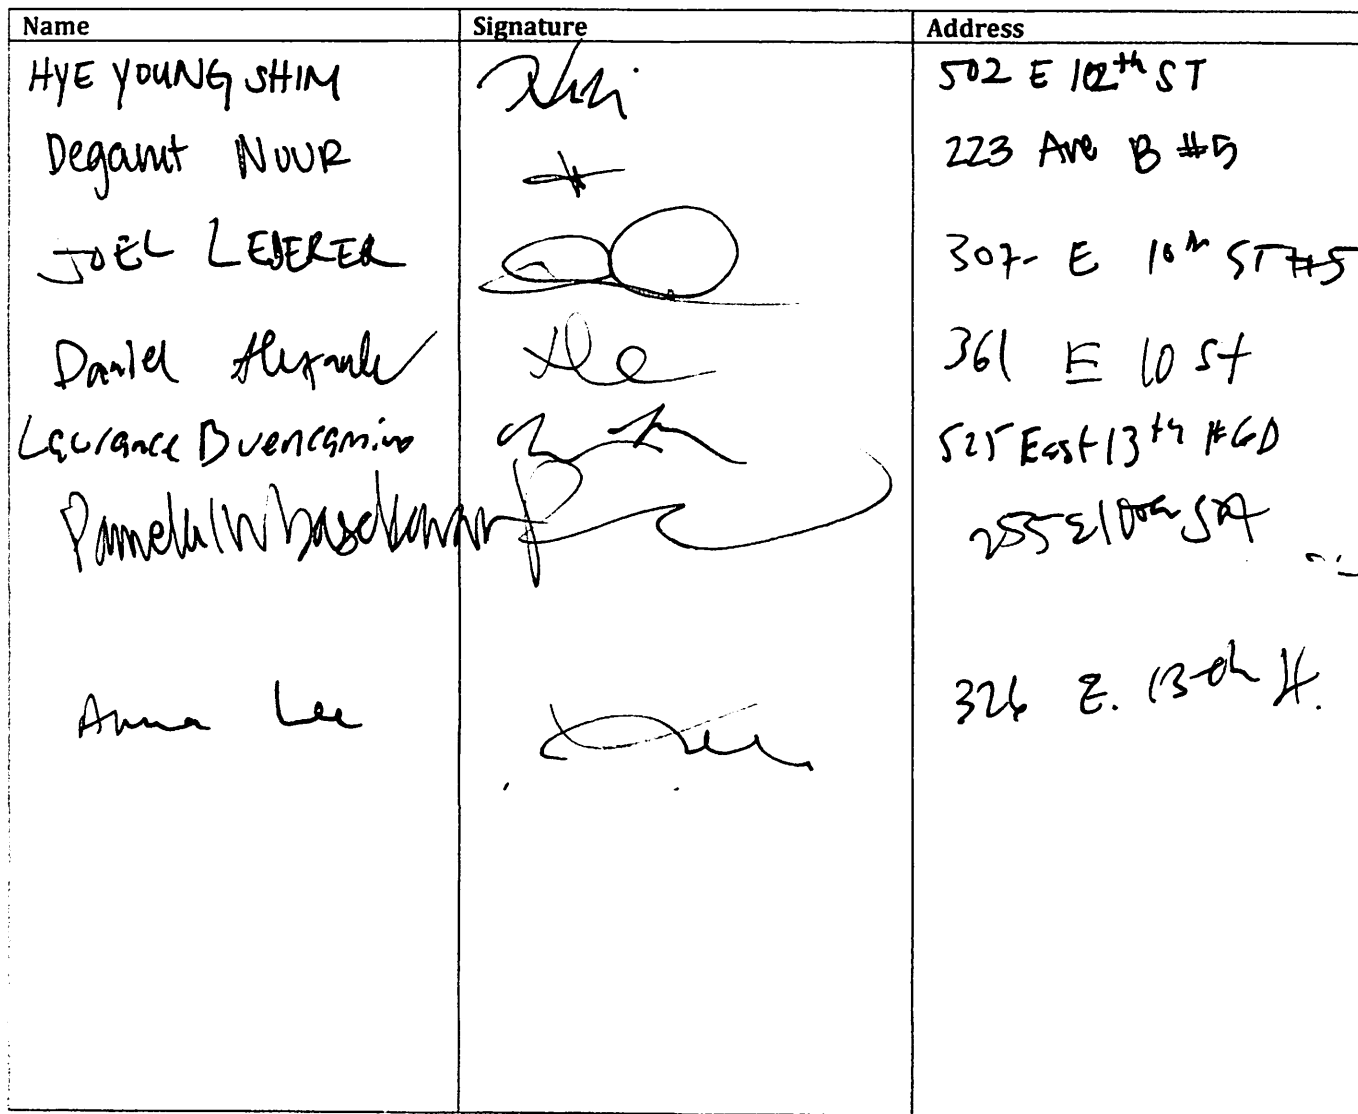 Name Signature Address
HYE YOUNG SHIM 502 E 102th ST
Deganit NOUR 223 Ave B #5
JOEL LEDERER 307- E 10th ST #5
Daniel 361 E 10 St
Laurance Buencamino 525 East 13th #6D
Pamela 255 E 10th St
Anna Lee 326 E. 13th St.